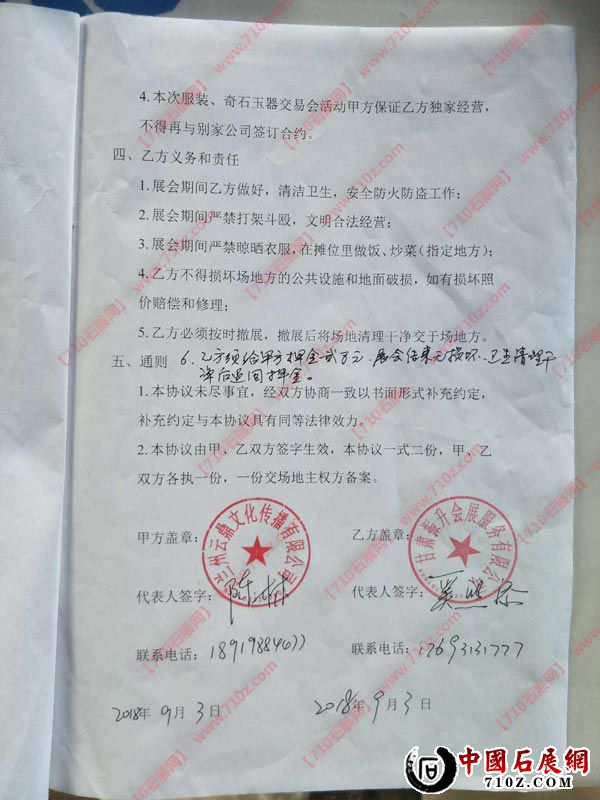 4.本次服装、奇石玉器交易会活动甲方保证乙方独家经营，
不得再与别家公司签订合约。
四、乙方义务和责任
1.展会期间乙方做好，清洁卫生，安全防火防盗工作；
2.展会期间严禁打架斗殴，文明合法经营；
3.展会期间严禁晾晒衣服，在摊位里做饭、炒菜（指定地方）；
4.乙方不得损坏场地方的公共设施和地面破损，如有损坏照
价赔偿和修理；
5.乙方必须按时撤展，撤展后将场地清理干净交于场地方。
五、通则 6.乙方须给甲方押金贰万元.展会结束无损坏.卫生清理干
净后退回押金。
1.本协议未尽事宜，经双方协商一致以书面形式补充约定，
补充约定与本协议具有同等法律效力。
2.本协议由甲、乙双方签字生效，本协议一式二份，甲、乙
双方各执一份，一份交场地主权方备案。
甲方盖章： 兰州云鼎文化传播有限公司
乙方盖章： 甘肃振升会展服务有限公司
代表人签字：
代表人签字：
联系电话：18919884677
联系电话：17693131777
2018年9月3日
2018年9月3日
【710石展网】www.710z.com
中國石展網
710Z.COM